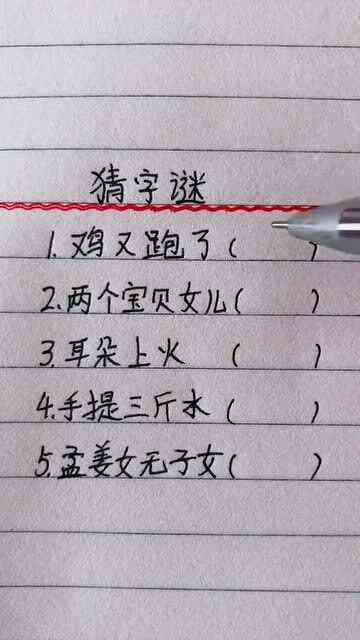 猜字谜
1.鸡又跑了( )
2.两个宝贝女儿( )
3.耳朵上火 ( )
4.手提三斤水 ( )
5.孟姜女无子女( )